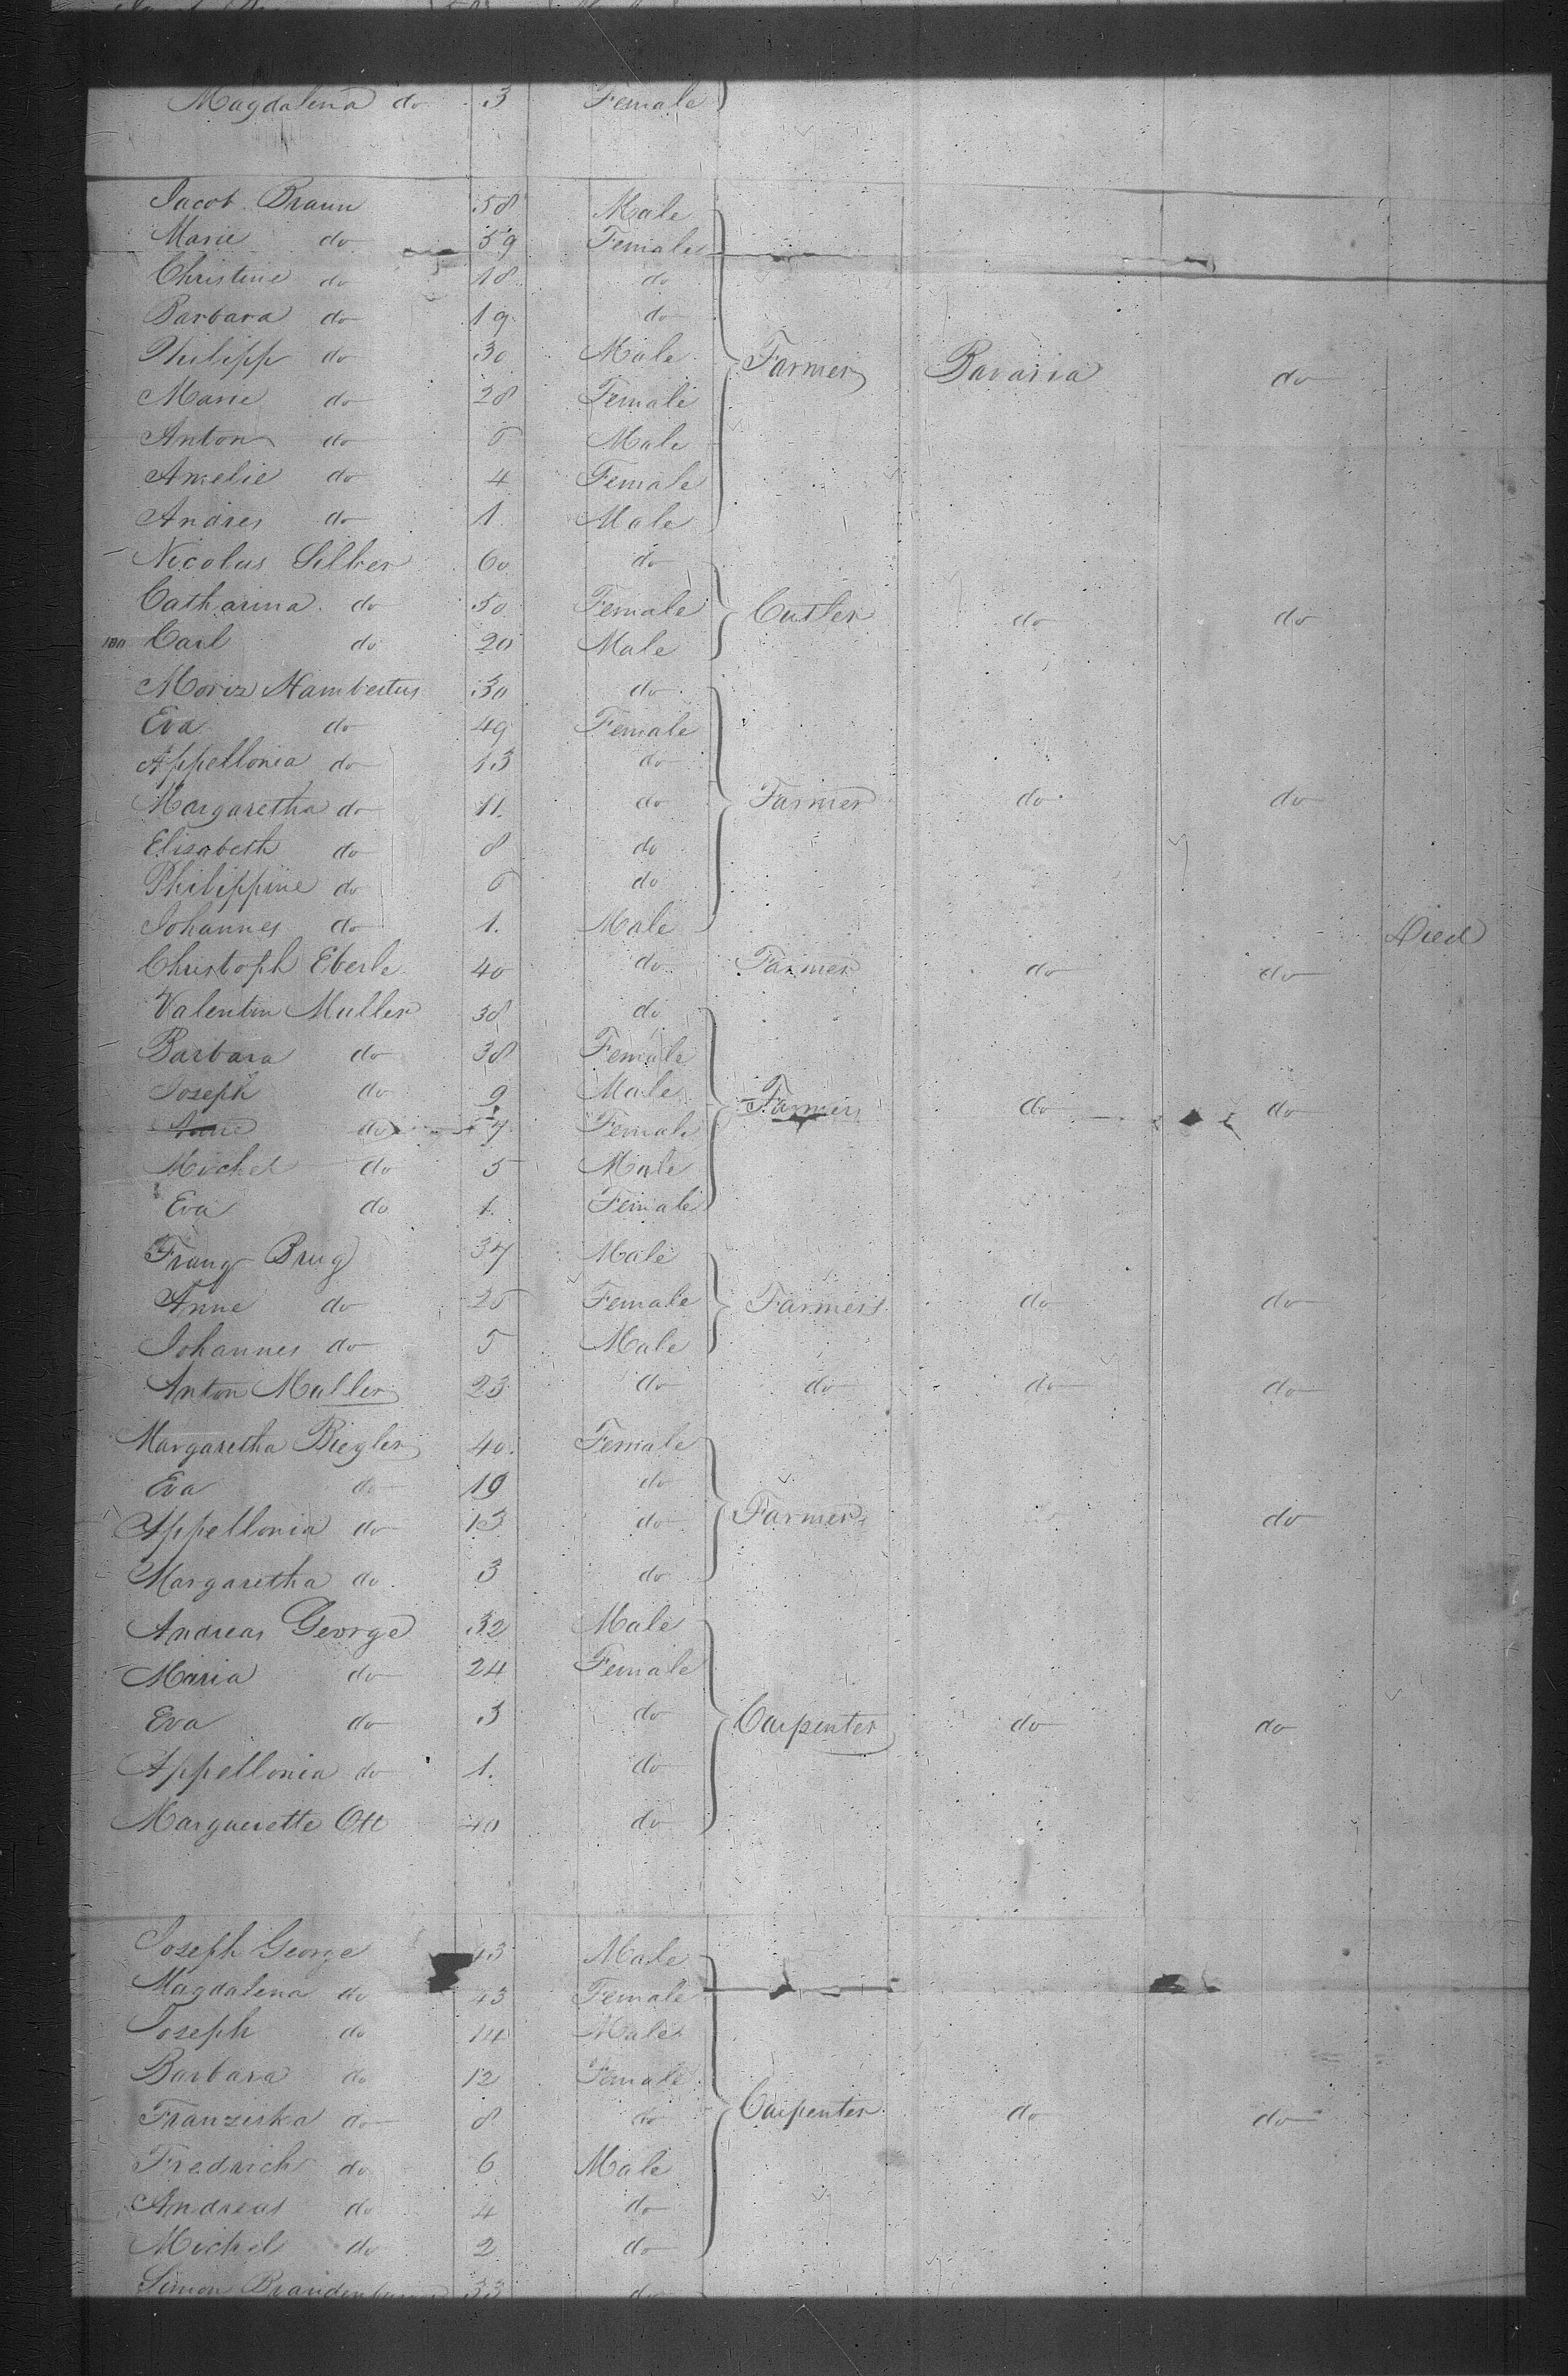 Magdalena do 3 Female
Jacob Braun 58 Male
Marie do 59 Female
Christine do 18 do
Barbara do 19 do
Philipp do 30 Male Farmer Bavaria do
Marie do 28 Female
Anton do 6 Male
Amelie do 4 Female
Andres do 1 Male
Nicolus Silber 60 do
Catharina do 50 Female Cutler do do
100 Carl do 20 Male
Moriz Hambertus 30 do
Eva do 49 Female
Appellonia do 13 do
Margaretha do 11. do Farmer do do
Elisabeth do 8 do
Philippine do 6 do
Johannes do 1. Male Died
Christoph Eberle 40 do Farmer do do
Valentin Muller 38 do
Barbara do 38 Female
Joseph do 9 Male Farmers do do
do 7 Female
Michel do 5 Male
Eva do 1. Female
Franz Brug 37 Male
Anne do 25 Female Farmers do do
Johannes do 5 Male
Anton Muller 23 do do do do
Margaretha Biegler 40. Female
Eva do 19 do
Appellonia do 13 do Farmer do
Margaretha do 3 do
Andreas George 32 Male
Maria do 24 Female
Eva do 3 do Carpenter do do
Appellonia do 1. do
Marguerette Ott 40 do
Joseph George 43 Male
Magdalena do 43 Female
Joseph do 14 Male
Barbara do 12 Female
Franziska do 8 do Carpenter do do
Fredrich do 6 Male
Andreas do 4 do
Michel do 2 do
Simon 33 do